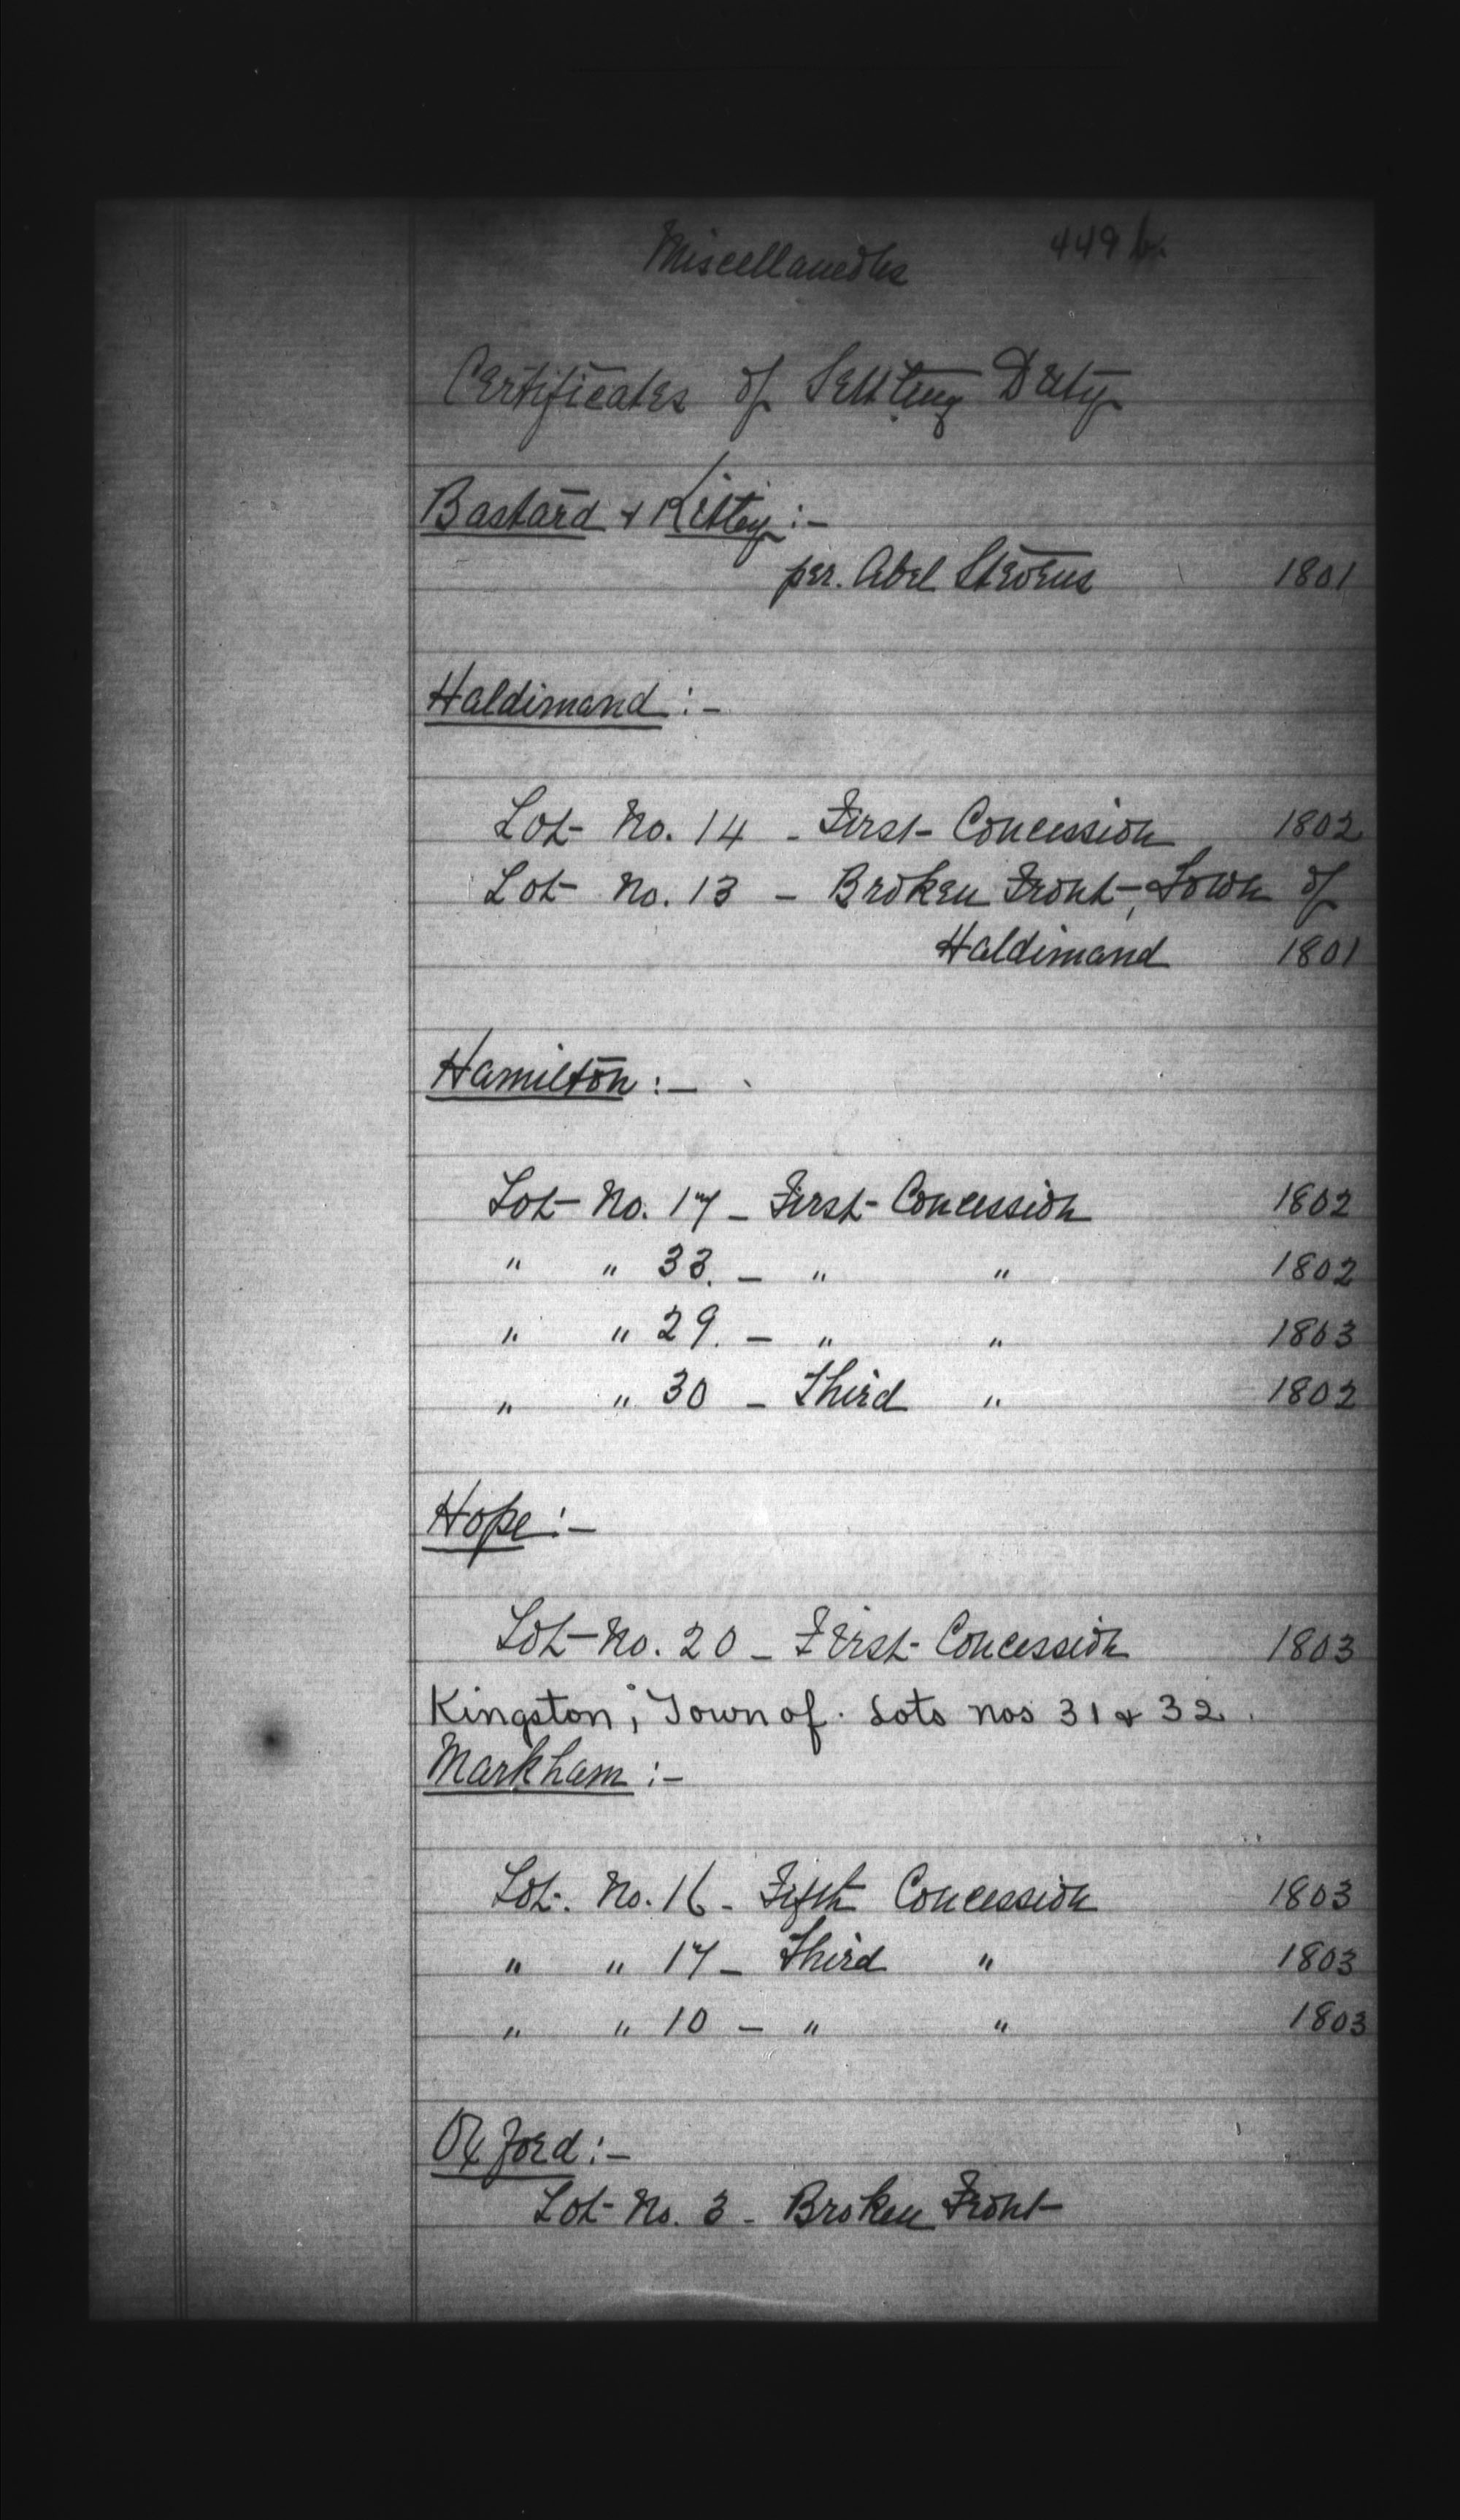 Miscellaneous 449 b.
Certificates of Settling Duty
Bastard & Kitley :-
per. Abel Stevens 1801
Haldimand :-
Lot No. 14 - First Concession 1802
Lot No. 13 - Broken Front, Town of
Haldimand 1801
Hamilton :-
Lot No. 17 - First Concession 1802
" " 33. - " " 1802
" " 29. - " " 1803
" " 30 - Third " 1802
Hope :-
Lot No. 20 - First Concession 1803
Kingston, Town of. Lots nos 31 & 32.
Markham :-
Lot. No. 16 - Fifth Concession 1803
" " 17 - Third " 1803
" " 10 - " " 1803
Oxford :-
Lot No. 3 - Broken Front